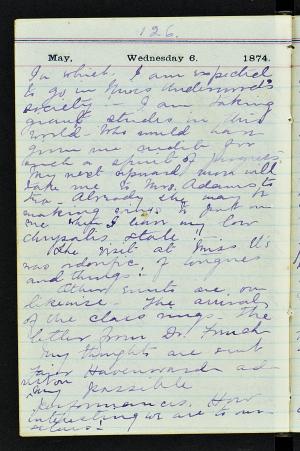 126.
May, Wednesday 6. 1874.
In which, I am expected
to go in Miss Underwood's
society - I am taking
grand strides in this
world - Who would have
given me credit for
such a spirit of progress.
My next upward move will
take me to Mrs. Adams to
tea - Already she may be
making to put on
me when I leave my low
chrysalis state!!
The visit at Miss U's
was of tongues
and things!
Other events are on
likewise - The arrival
of the class rings - The
letter from Dr. French
My thoughts are sent
Havenward as
my possible
performances. How
interesting we are to our
selves!